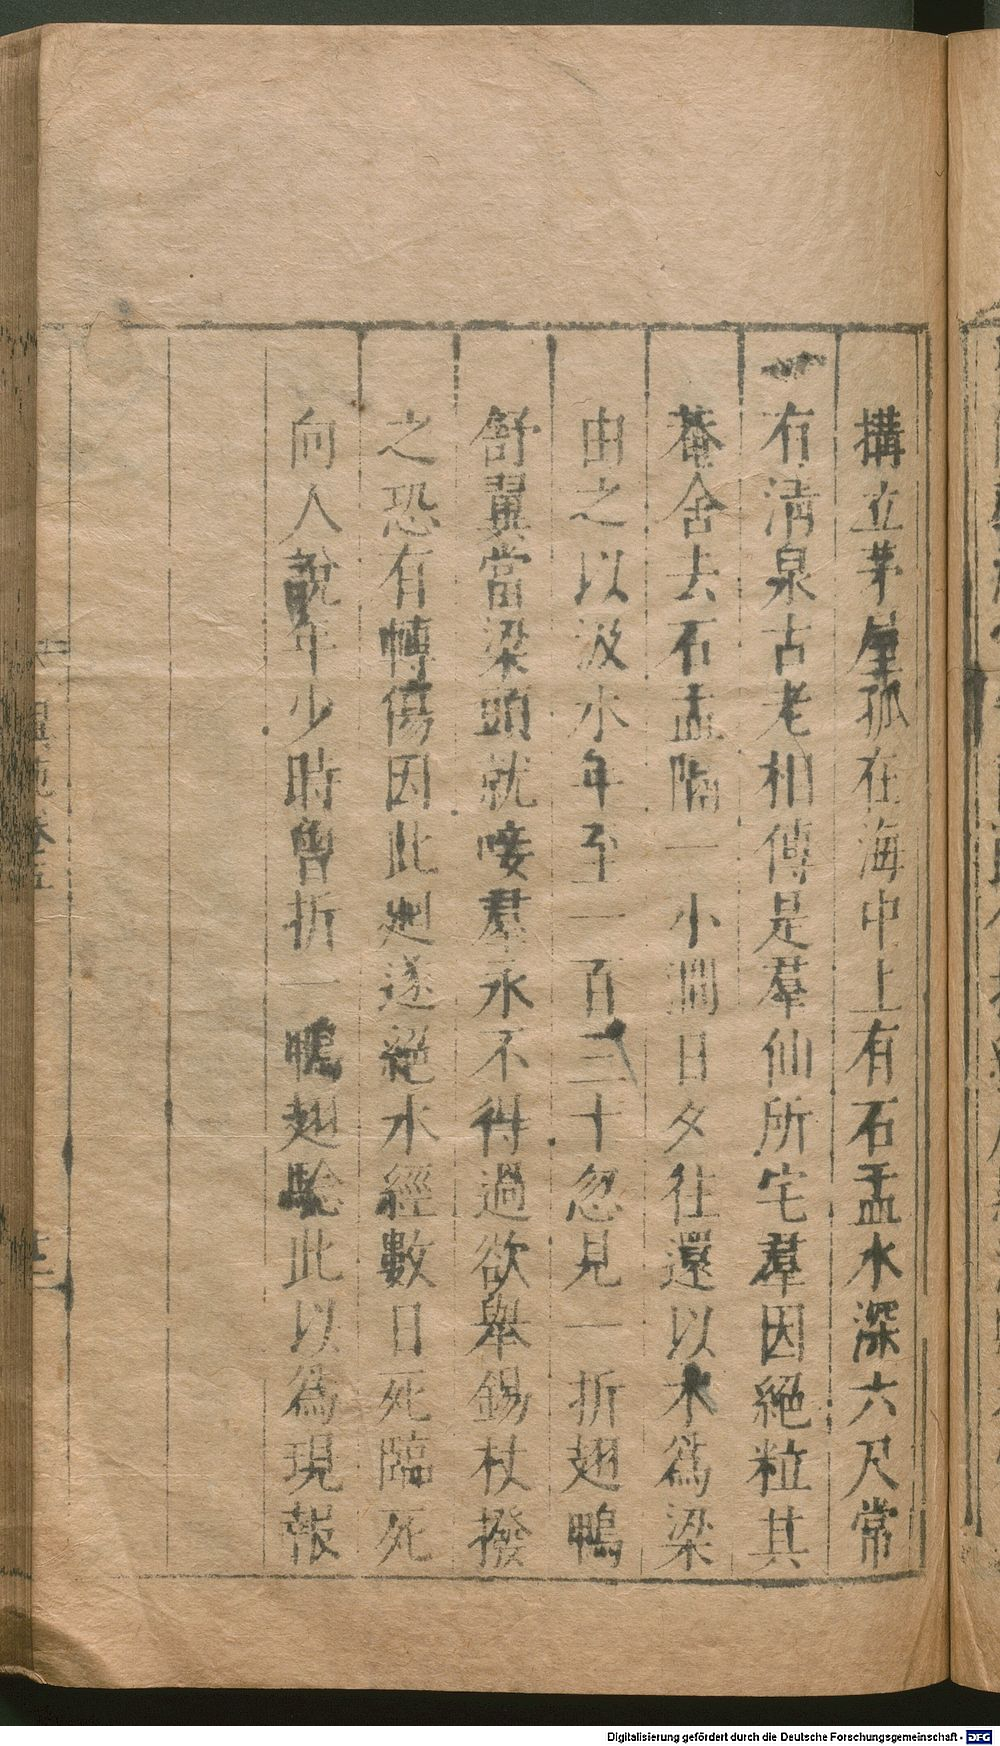 搆立茅屋孤在海中上有石盂水深六尺常
有清泉古老相傳是羣仙所宅羣因絕粒其
菴舍去石盂隔一小澗日夕往還以木爲梁
由之以汲水年至一百三十忽見一折翅鴨
舒翼當梁頭就唼羣永不得過欲舉錫杖撥
之恐有轉傷因此廻遂絕水經數日死臨死
向人說年少時曾折一鴨翅驗此以爲現報
異苑卷五
Digitalisierung gefördert durch die Deutsche Forschungsgemeinschaft - DFG